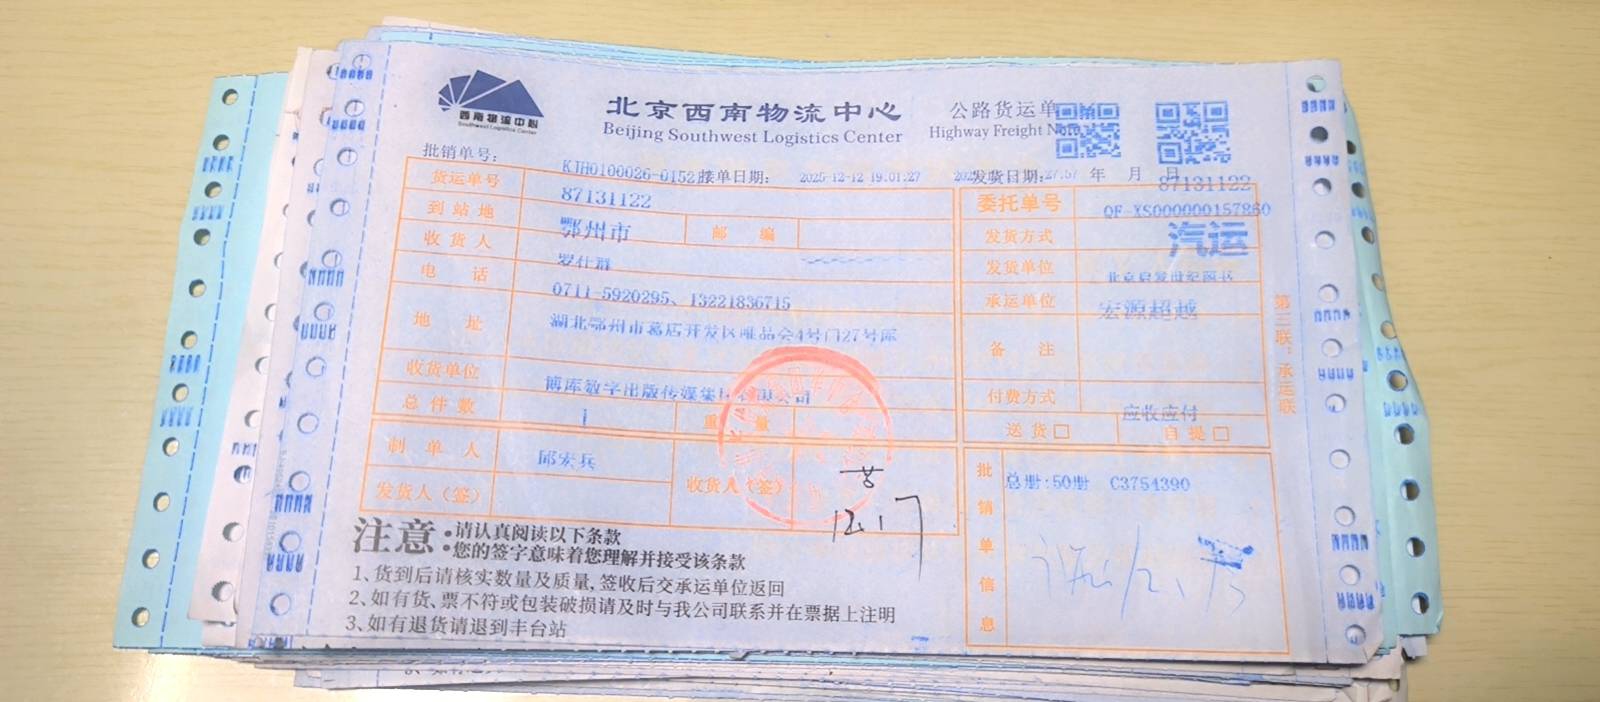 西南物流中心
Southwest Logistics Center
北京西南物流中心
Beijing Southwest Logistics Center
公路货运单
Highway Freight Note
批销单号: KJH0100026-0152 接单日期: 2025-12-12 19:01:27 发货日期: 年 月 日
87131122
货运单号 87131122
委托单号 QF-XS000000157860
到站地 鄂州市 邮编
发货方式 汽运
收货人 罗仕群
发货单位 北京启发世纪图书
电话 0711-5920295、13221836715
承运单位 宏源超越
地址 湖北鄂州市葛店开发区唯品会4号门27号库
备注
收货单位 博库数字出版传媒集团有限公司
付费方式 应收应付
总件数 1 重量
送货□ 自提□
制单人 邱宏兵
收货人(签)
12.17
发货人(签)
批销单信息
总册:50册 C3754390
第三联:承运联
注意:请认真阅读以下条款
您的签字意味着您理解并接受该条款
1、货到后请核实数量及质量,签收后交承运单位返回
2、如有货、票不符或包装破损请及时与我公司联系并在票据上注明
3、如有退货请退到丰台站